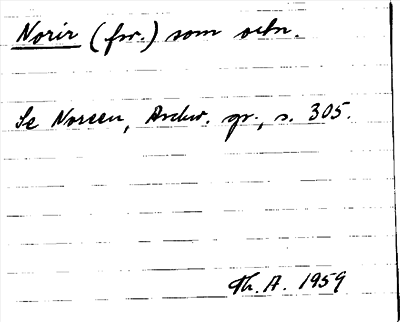 Norir (fsv.) som ortn.
Se Noreen, Ardw. gr., s. 305.
Th. A. 1959